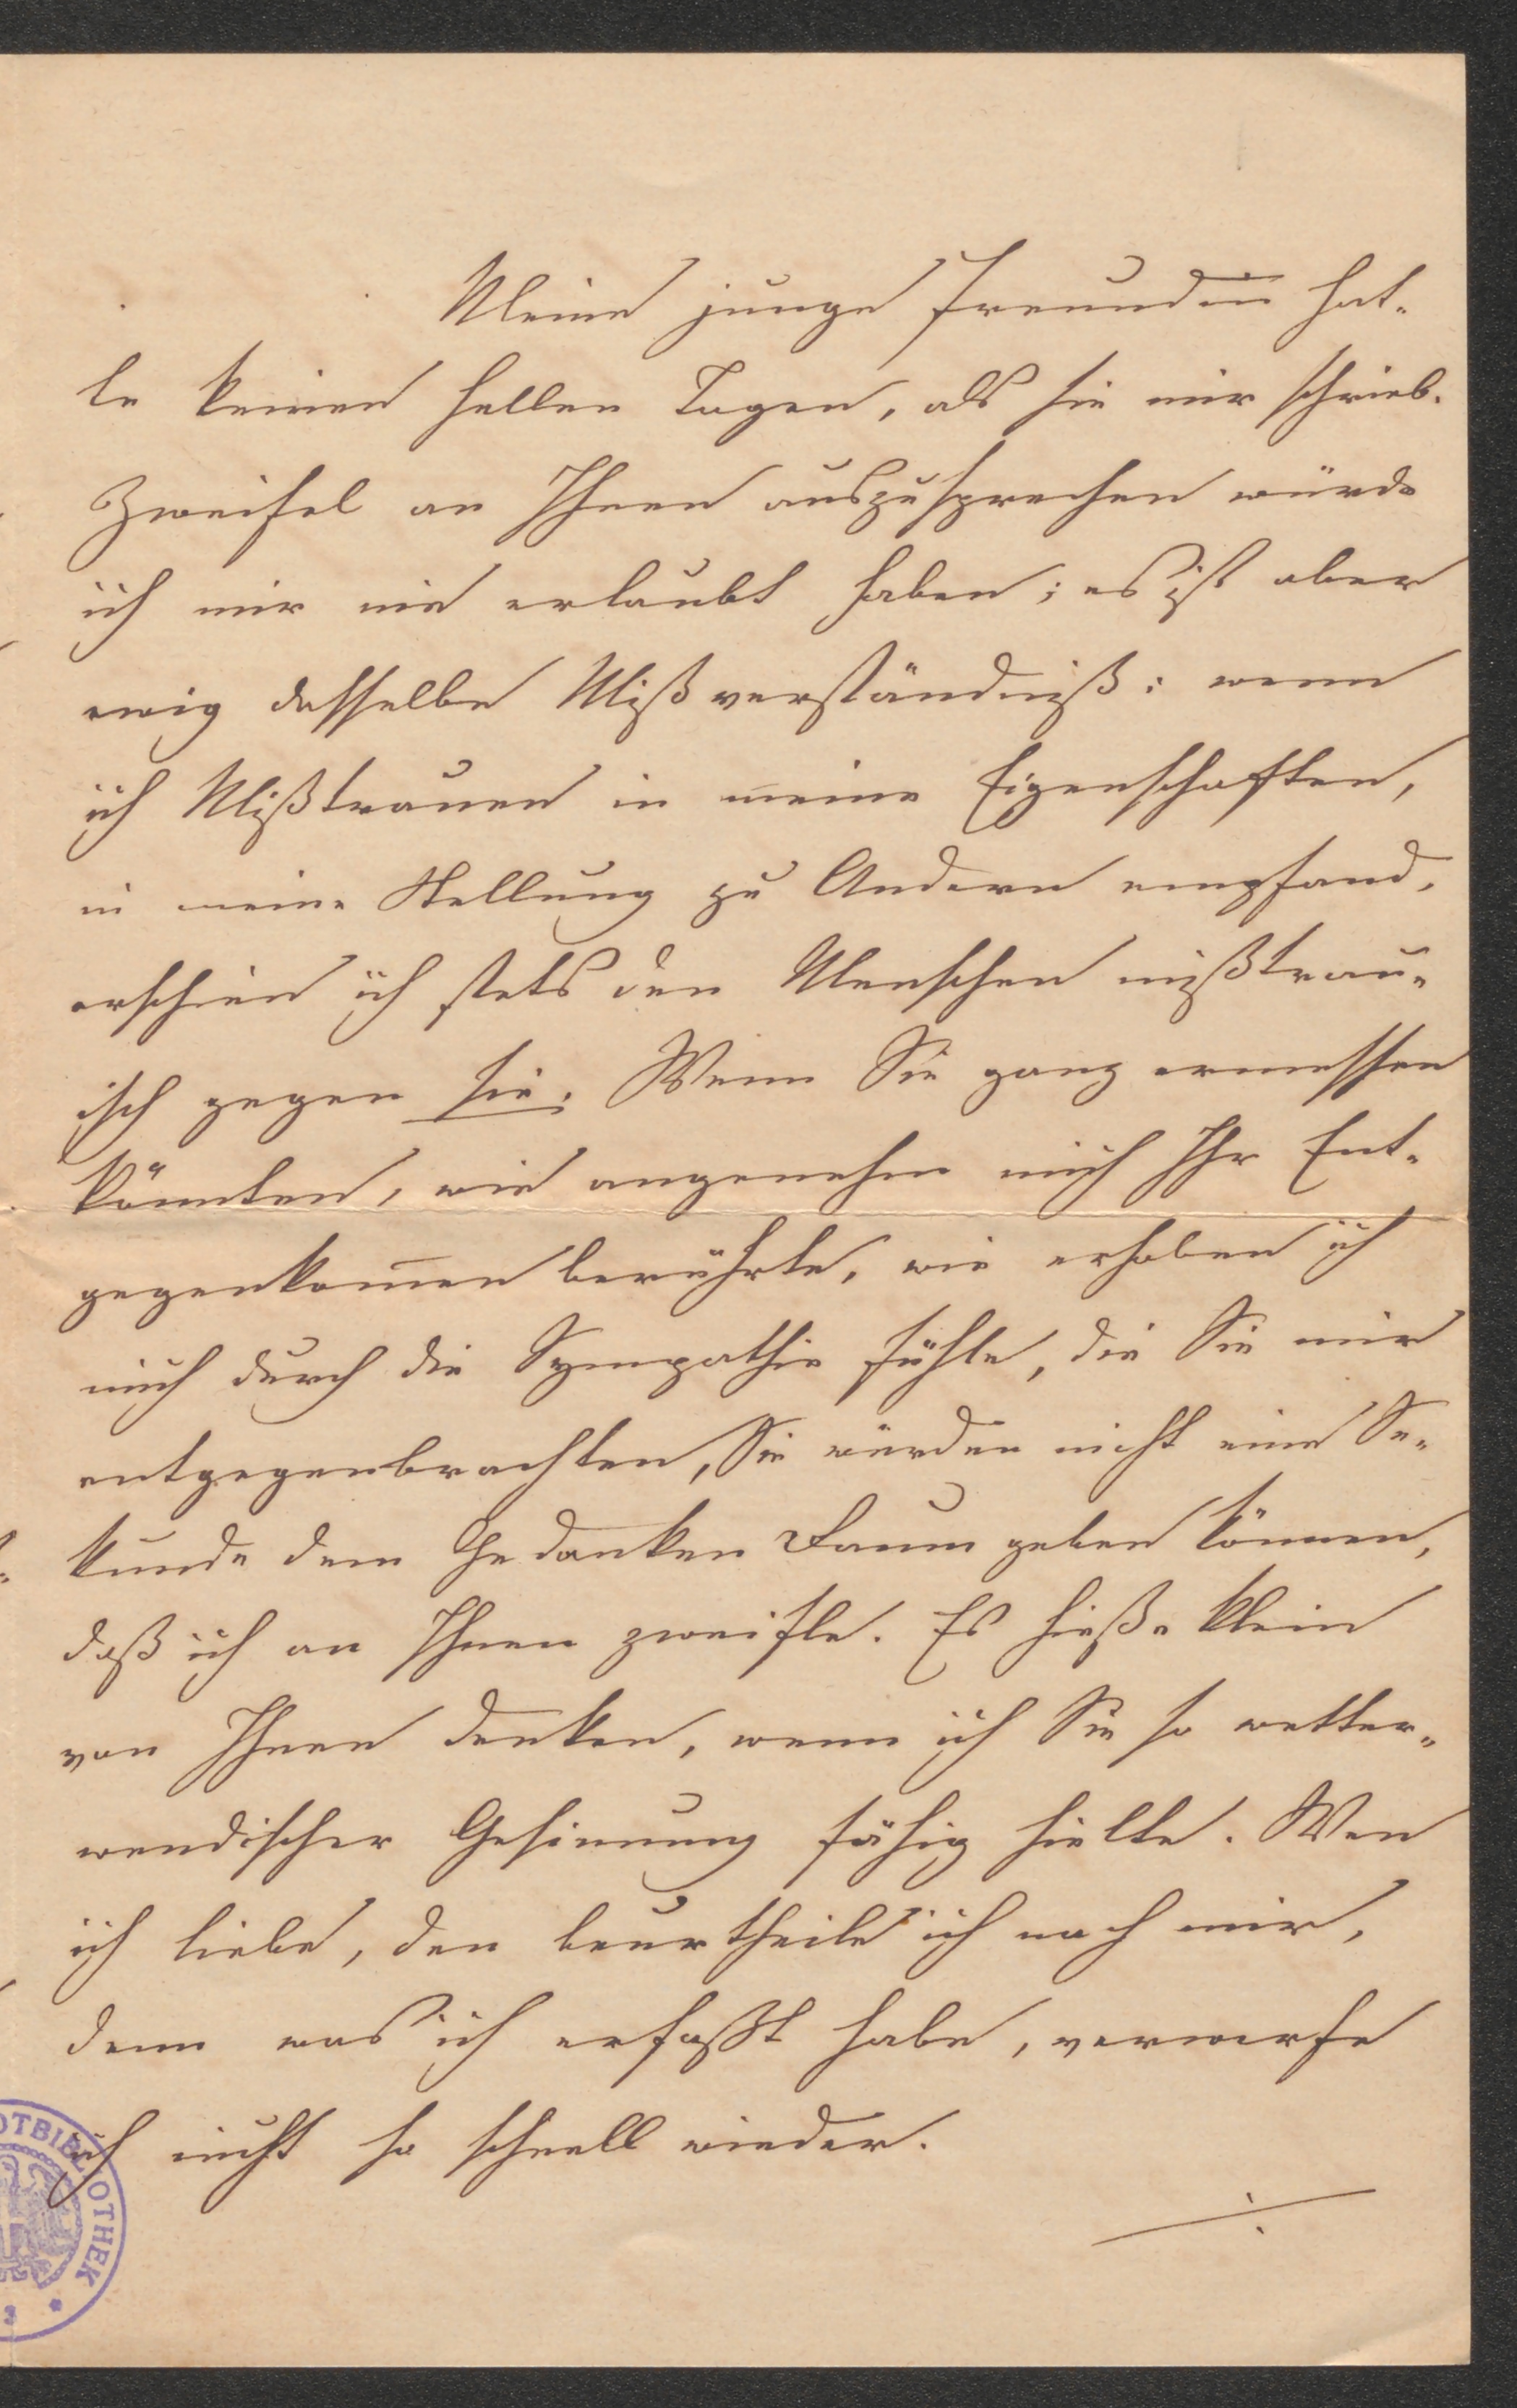 Meine junge Freundin hat-
te keinen hellen Tagen, als sie mir schrieb.
Zweifel an Ihnen auszusprechen würde
ich mir nie erlaubt haben; es ist aber
ewig dasselbe Mißverständniß: wenn
ich Mißtrauen in meine Eigenschaften,
in meine Stellung zu Andern empfand,
erschien ich stets den Menschen mißtrau-
isch gegen sie. Wenn Sie ganz ermessen
könnten, wie angenehm mich Ihr Ent-
gegenkom̅en berührte, wie erhoben ich
mich durch die Sympathie fühle, die Sie mir
entgegenbrachten, Sie würden nicht eine Se-
kunde dem Gedanken Raum geben können,
daß ich an Ihnen zweifle. Es hieße klein
von Ihnen denken, wenn ich Sie so wetter-
wendischer Gesinnung fähig hielte. Wen
ich liebe, den beurtheile ich nach mir,
denn was ich erfaßt habe, verwerfe
ich nicht so schnell wieder.
OTBIBLIOTHEK
3 *